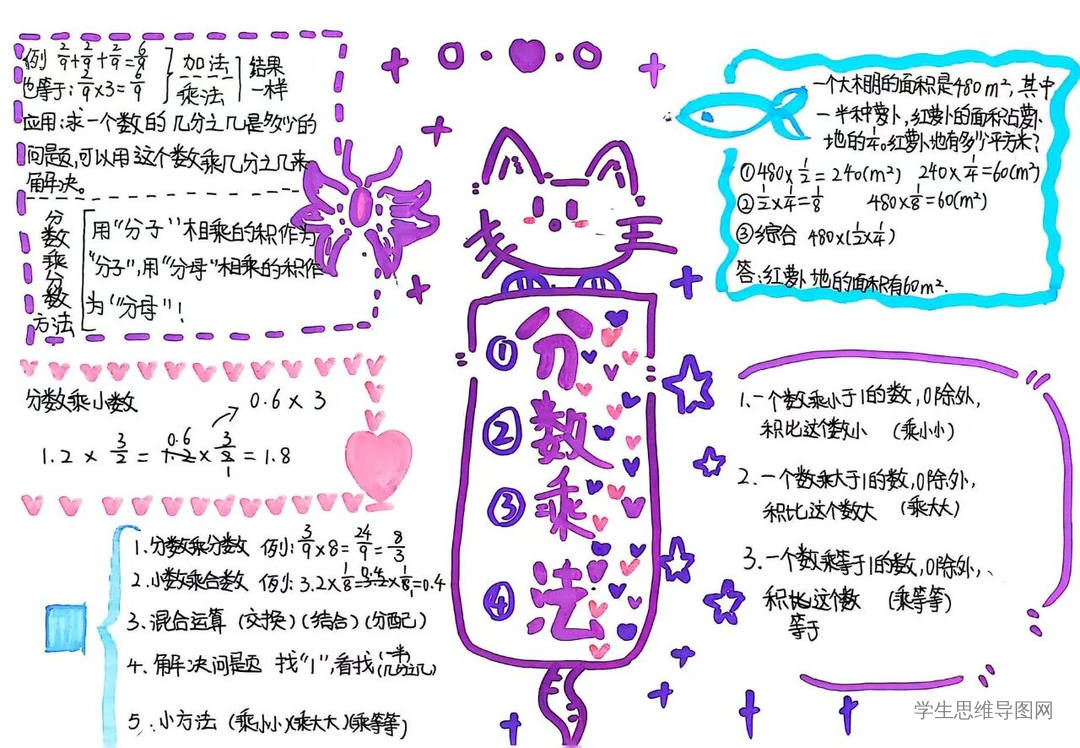 例 2/9+2/9+2/9=6/9
也等于:2/9×3=6/9
加法
乘法
结果
一样
应用:求一个数的几分之几是多少的
问题,可以用这个数乘几分之几来
解决。
分数乘分数方法
用"分子"相乘的积作为
"分子",用"分母"相乘的积作
为"分母"!
分数乘小数
0.6×3
1.2×3/2=1.2×3/2=1.8
0.6
1
1.分数乘分数 例:3/9×8=24/9=8/3
2.小数乘合数 例:3.2×1/8=×1/8=0.4
0.4
1
3.混合运算(交换)(结合)(分配)
4.解决问题 找"1",看找(一半 几分之几)
5.小方法(乘小小)(乘大大)(乘等等)
①分
②数
③乘
④法
一个大棚的面积是480m²,其中
一半种萝卜,红萝卜的面积占萝卜
地的1/4。红萝卜地有多少平方米?
①480×1/2=240(m²) 240×1/4=60(m²)
②1/2×1/4=1/8 480×1/8=60(m²)
③综合 480×(1/2×1/4)
答:红萝卜地的面积有60m².
1.一个数乘小于1的数,0除外,
积比这个数小 (乘小小)
2.一个数乘大于1的数,0除外,
积比这个数大 (乘大大)
3.一个数乘等于1的数,0除外,、
积比这个数 (乘等等)
等于
学生思维导图网